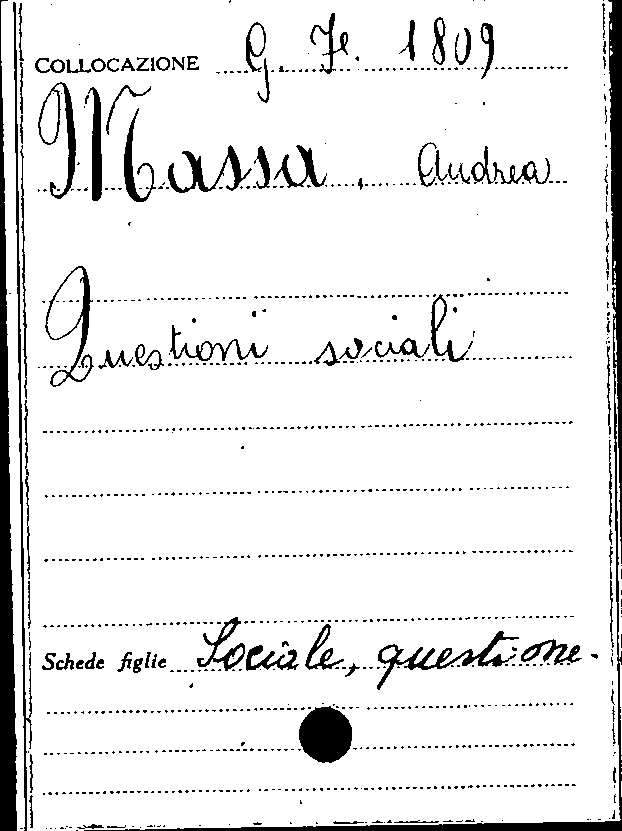 COLLOCAZIONE G. Fe. 1809
Massa, Andrea
Questioni sociali
Schede figlie Sociale, questione.